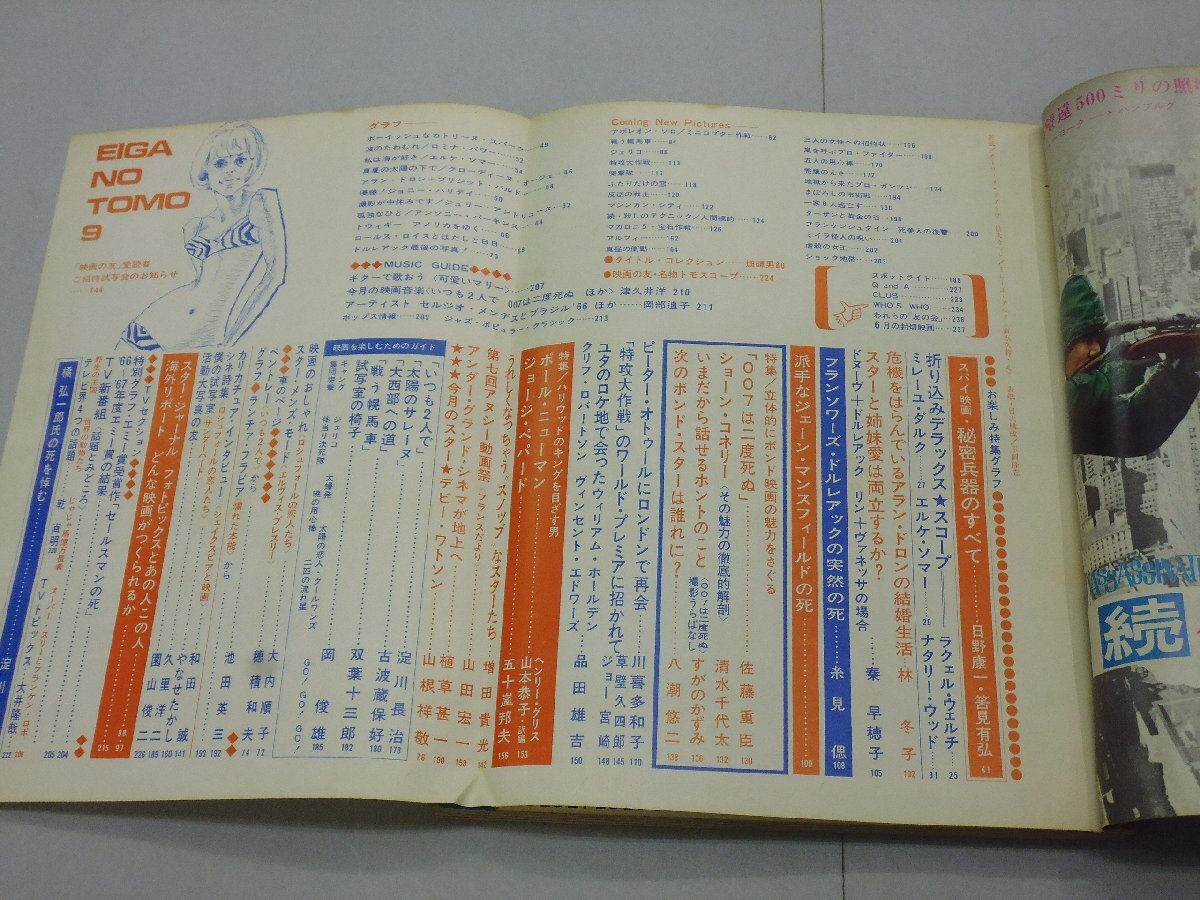 EIGA
NO
TOMO
9
「映画の友」愛読者
ご招待試写会のお知らせ
……144
グラフ
ボーイッシュなカトリーヌ・スパーク……49
波のたわむれ/ロミナ・パワー……52
私は海が好き/エルケ・ソマー……54
真夏の太陽の下で/クローディーヌ・オージェ
アラン・ドロン+ブリジット・バルドー
優勝/ジョニー・ハリディ……60
撮影が中休みです/ジュリー・アンドリュース
孤独なひと/アンソニー・パーキンス
トウィギー アメリカをゆく
ロールス・ロイスとはだしと白日
ドルレアック最後の写真!
◆◆◆MUSIC GUIDE◆◆◆
ギターで歌おう〈可愛いマリー〉……207
今月の映画音楽〈いつも2人で 007は二度死ぬ ほか〉津久井洋 210
アーティスト セルジオ・メンデスとブラジル'66 ほか……岡部迪子 211
ポップス情報……202 ジャズ・ポピュラー・クラシック……213
Coming New Pictures
ナポレオン・ソロ/ミニコプター作戦……82
戦う幌馬車……84
ジェリコ……86
特攻大作戦……113
突撃隊……
ふたりだけの窓……118
反逆の戦士……120
マシンガン・シティ……122
続・殺しのテクニック/人間標的……224
マカロニ5・宝石作戦……126
アルフィー……62
真昼の衝動……64
●タイトル・コレクション……畑暉男80
●映画の友・名物トモスコープ……224
三人の女性への招待状……166
嵐を呼ぶプロ・ファイター……168
五人の用心棒……170
悪魔のえさ……172
地獄から来たプロ・ガンマン……174
まぼろしの市街戦……184
一家8人逃亡す……186
ターザンと黄金の谷……198
フランケンシュタイン 死美人の復讐……200
ミイラ怪人の呪い……201
ショック地帯……
スポットライト……188
Q and A……227
CLUB……223
WHO'S WHO……234
われらの「友の会」……236
6月の封切映画……237
●お楽しみ特集グラフ
スパイ映画・秘密兵器のすべて……日野康一・筈見有弘 61
折り込みデラックス★スコープ……ラクェル・ウェルチ 25
ミレーユ・ダルク……27 エルケ・ソマー……29 ナタリー・ウッド……31
危機をはらんでいるアラン・ドロンの結婚生活……林 冬子 102
スターと姉妹愛は両立するか?
ドヌーヴ+ドルレアック リン+ヴァネッサの場合……秦 早穂子 105
フランソワーズ・ドルレアックの突然の死……糸見 偲 108
派手なジェーン・マンスフィールドの死……109
特集/立体的にボンド映画の魅力をさぐる
「007は二度死ぬ」……佐藤重臣 130
ショーン・コネリー〈その魅力の徹底的解剖〉……清水千代太 132
いまだから話せるホントのこと〈007は二度死ぬ 撮影うらばなし〉……すがのかずみ 136
次のボンド・スターは誰れに?……八潮悠二 138
ピーター・オトゥールにロンドンで再会……川喜多和子 110
「特攻大作戦」のワールド・プレミアに招かれて……草壁久四郎 145
ユタのロケ地で会ったウィリアム・ホールデン
クリフ・ロバートソン ヴィンセント・エドワーズ……ジョー宮崎 148
……品田雄吉 150
特集/ハリウッドのキングを目ざす男
ポール・ニューマン……ヘンリー・グリス 山本恭子・訳編 153
ジョージ・ペパード……五十嵐邦夫 156
うれしくなっちゃう“スノッブ”なスターたち……増田貴光 142
第七回アヌシー動画祭〈フランスだより〉……山田宏一 158
アンダー・グランド・シネマが地上へ……植草甚一 190
★★★今月のスター★デビー・ワトソン……山根祥敬 76
映画を楽しむためのガイド
「いつも2人で」……淀川長治 179
「太陽のサレーヌ」
「大西部への道」……古波蔵保好 180
「戦う幌馬車」
試写室の椅子……双葉十三郎 182
ギャング 大爆発 太陽の恋人・クールワンズ
突撃隊 ジェリコ 体当り決死隊 暁の用心棒 二匹の流れ星 GO!GO!GO!
映画のおしゃれ〈ロシュフォールの恋人たち〉……岡 俊雄 185
スター・メンズ・モード〈エルヴィス・プレスリー〉
◆◆◆車のページ◆◆◆
ペン・トレリー〈いつも2人で〉から……大内順子 72
グラフ・フランチャ・フラビア〈濡れた本能〉から……穂積和夫 74
カリカチュア・インタビュー
シネ詩集〈ロシュフォールの恋人たち〉……池田英三 192
僕の試写室〈サンダーバード〉シェイクスピアと映画
活動大写真の友……和田 誠 141
スター・ジャーナル フォトピックスとあの人この人……やなせたかし 160
海外リポート どんな映画がつくられるか……久里洋二 185
……園山俊二 226
◆◆◆TVセクション◆◆◆
特別グラフ・エミー賞受賞作「セールスマンの死」……97
'66〜'67年度エミー賞の結果……215
TV新番組〈話題とみどころ〉
テレビ界4つの話題……乾 直明 204
野生の王国 世界の動物たち
スーパー・スリーとフランケン・ロボ
TVトピックス……大井隆哉 208
橘弘一郎氏の死を悼む……淀川
望遠500ミリの照準
ニューヨーク――ハンブルグ
ASSASSINATION
続